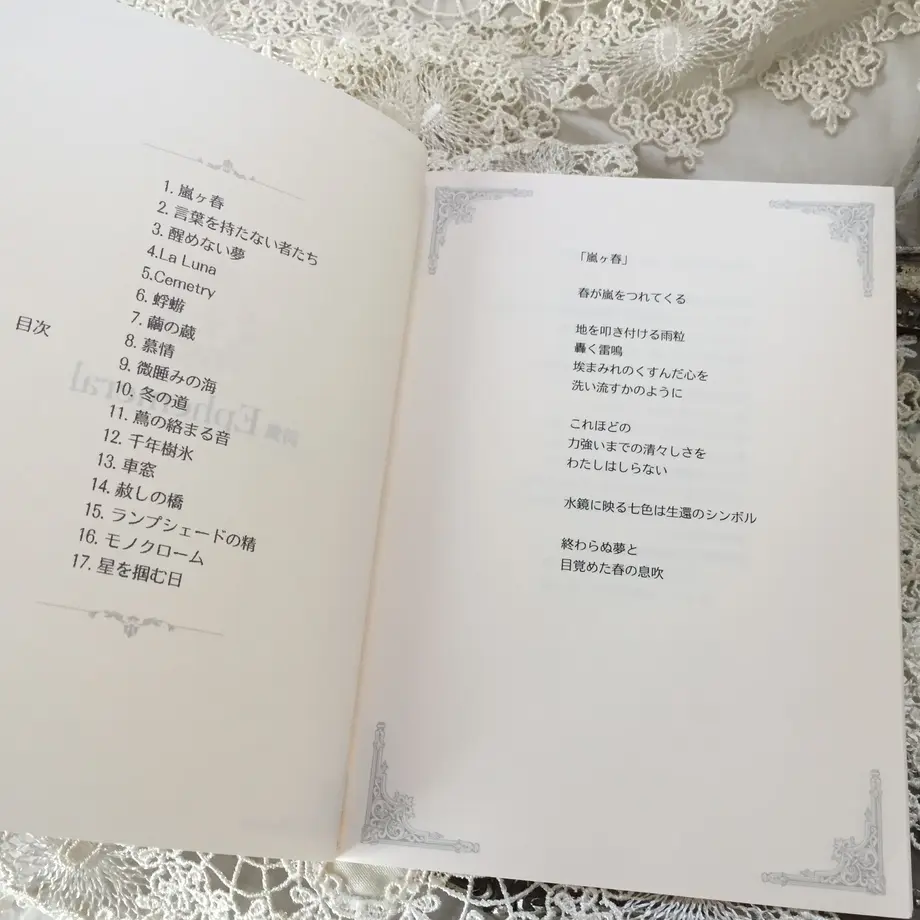 目次
1. 嵐ヶ春
2. 言葉を持たない者たち
3. 醒めない夢
4.La Luna
5.Cemetry
6. 蜉蝣
7. 繭の蔵
8. 慕情
9. 微睡みの海
10. 冬の道
11. 蔦の絡まる音
12. 千年樹氷
13. 車窓
14. 赦しの橋
15. ランプシェードの精
16. モノクローム
17. 星を掴む日
詩集 Ephemeral
「嵐ヶ春」
春が嵐をつれてくる
地を叩き付ける雨粒
轟く雷鳴
埃まみれのくすんだ心を
洗い流すかのように
これほどの
力強いまでの清々しさを
わたしはしらない
水鏡に映る七色は生還のシンボル
終わらぬ夢と
目覚めた春の息吹